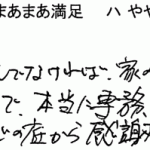 まあまあ満足 ハ やや
してなければ、家の
で、本当に事務
の症から感謝